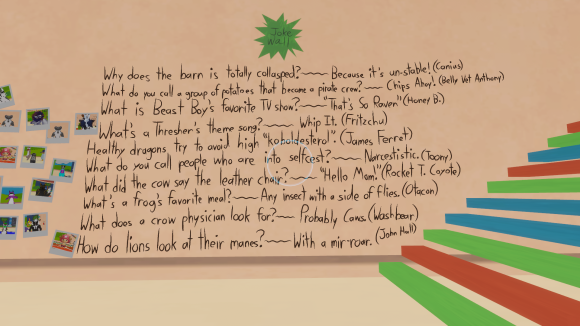 Joke
Wall
Why does the barn is totally collapsed?~~~ Because it's un-stable! (Canius)
What do you call a group of potatoes that become a pirate crew?~~~ Chips Ahoy! (Belly Vet Anthony)
What is Beast Boy's favorite TV show?~~~"That's So Raven" (Honey Bi)
What's a Thresher's theme song?~~~ Whip It. (Fritzchu)
Healthy dragons try to avoid high "koboldesterol". (James Ferret)
What do you call people who are into selfcest?~~~ Narcestistic. (Toony)
What did the cow say the leather chair?~~~ "Hello Mom." (Rocket T. Coyote)
What's a frog's favorite meal?~~~ Any insect with a side of flies. (Otacon)
What does a crow physician look for?~~~ Probably Caws. (Washbear)
How do lions look at their manes?~~~ With a mir-roar. (John Hall)